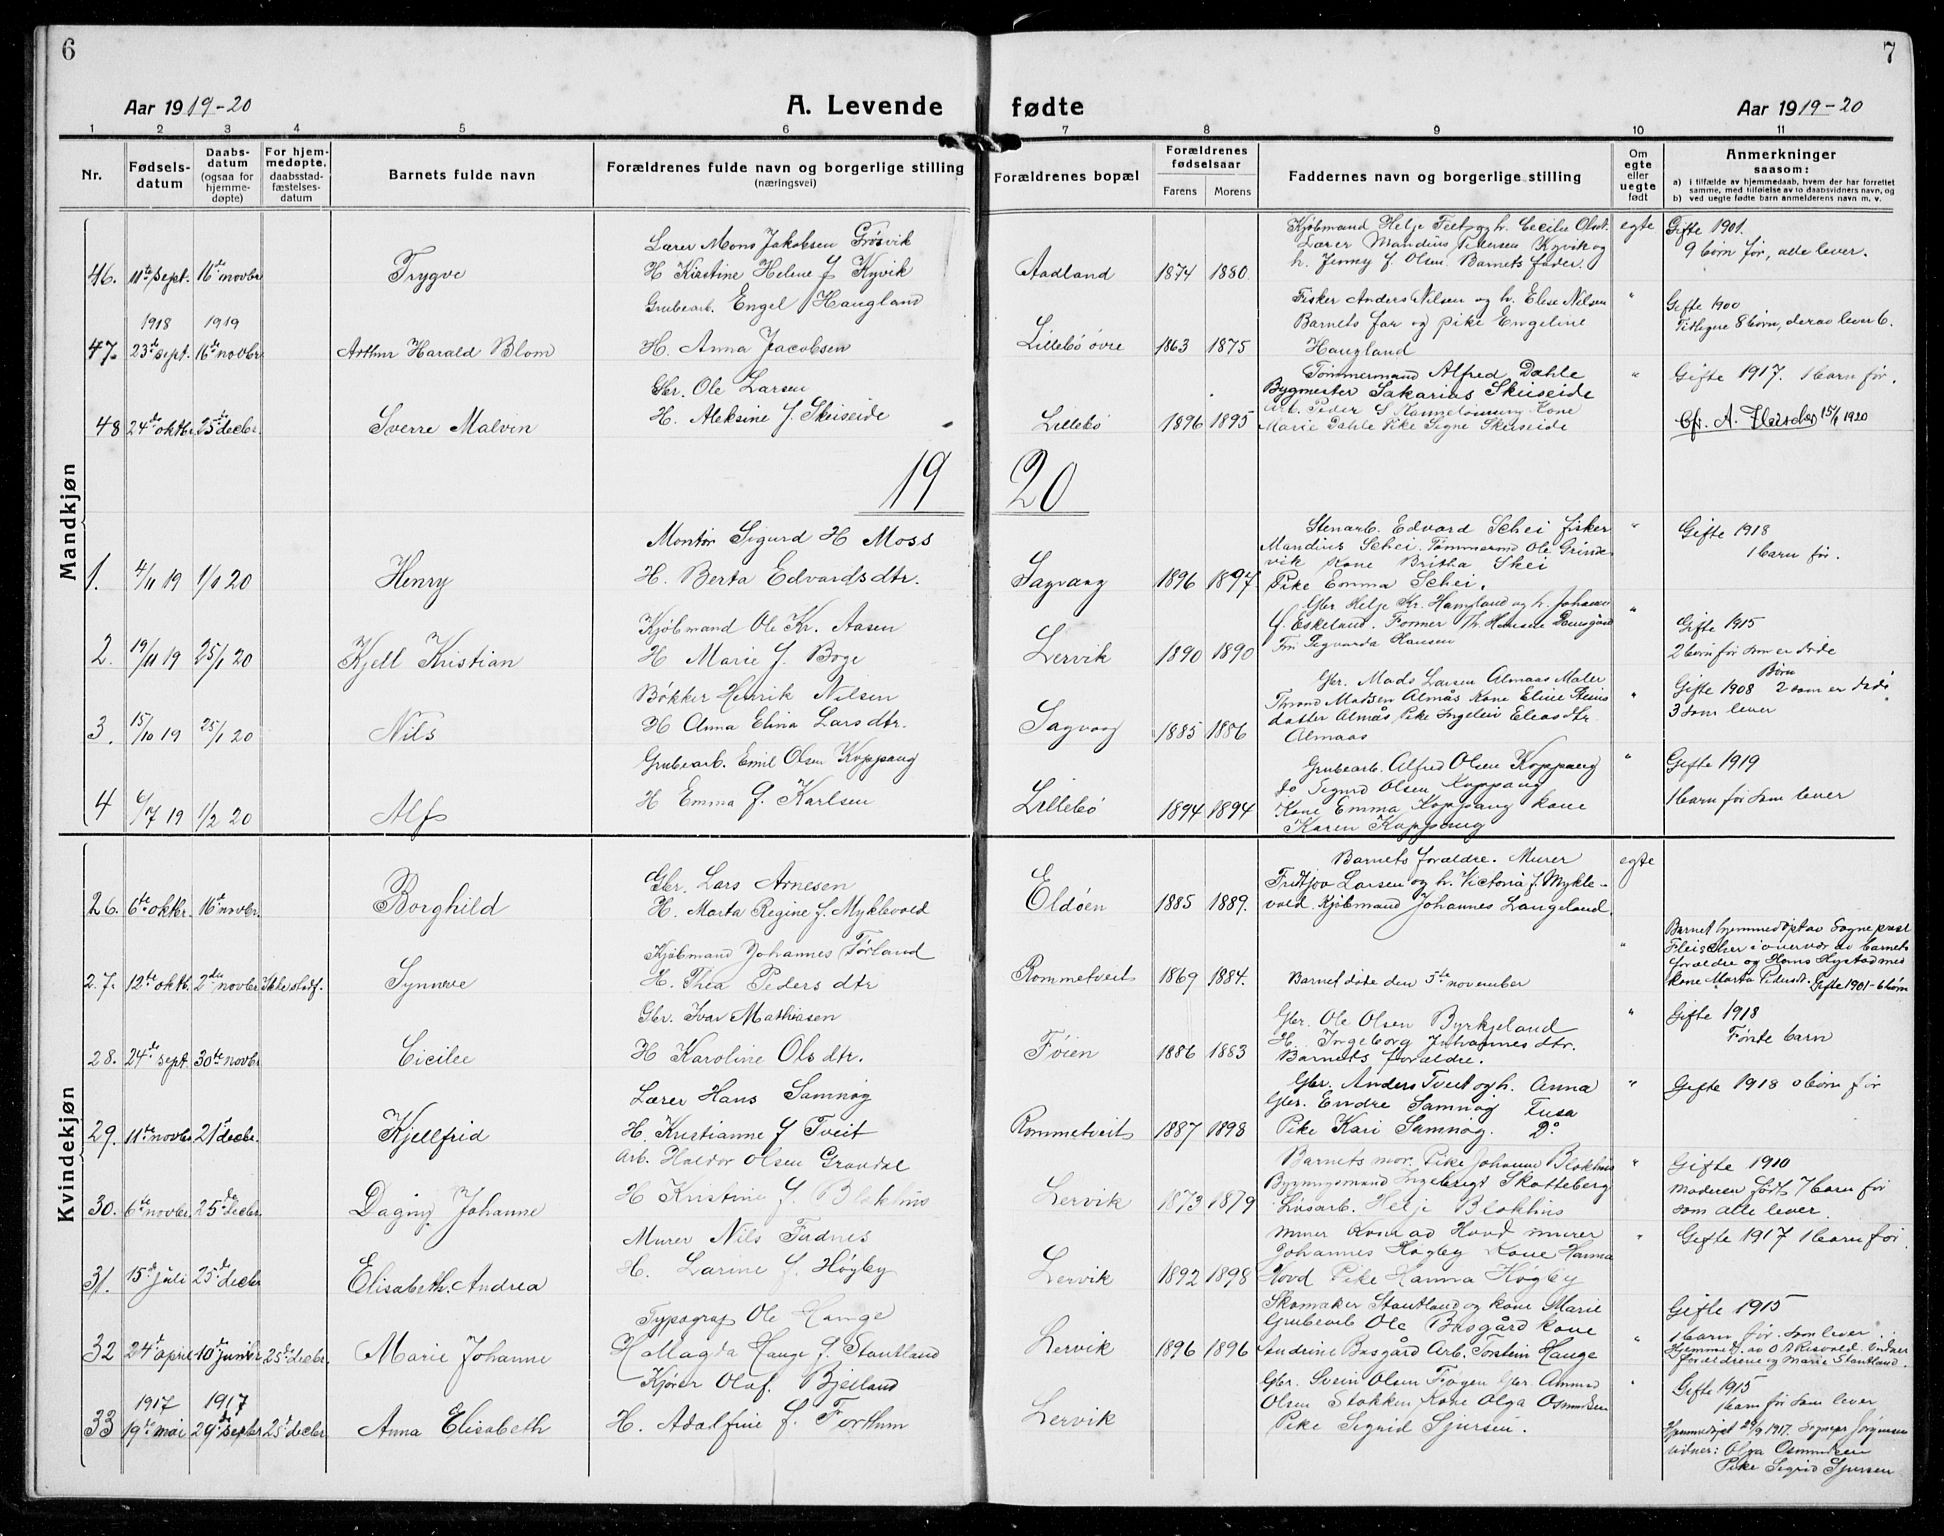 6
7
Aar 1919-20
A. Levende
fødte
Aar 1919-20
1 2 3 4 5 6 7 8 9 10 11
Nr.
Fødsels-
datum
Daabs-
datum
(ogsaa for
hjemme-
døpte)
For hjem-
medøpte,
daabsstad-
fæstelses-
datum
Barnets fulde navn
Forældrenes fulde navn og borgerlige stilling
(næringsvei)
Forældrenes bopæl
Forældrenes
fødselsaar
Farens
Morens
Faddernes navn og borgerlige stilling
Om
egte
eller
uegte
født
Anmerkninger
saasom:
a) i tilfælde av hjemmedaab, hvem der har forrettet
samme, med tilføielse av to daabsvidners navn, og
b) ved uegte fødte barn anmelderens navn m. v.
Mandkjøn
46. 11te sept. 16de novbr Trygve
Lærer Mons Jakobsen Grøsvik
H Kirstine Helene f Kyvik
Aadland 1874 1880
Kjøbmand Helje h. Cecilie
Lærer Mandius Petersen Kyvik og
h. Jenny f. Olsen Barnets fader.
egte
Gifte 1901.
9 børn før, alle lever.
1918 1919
47. 23de sept. 16de novbr Arthur Harald Blom
Grubearb. Engel Haugland
H. Anna Jacobsen
Lillebø øvre 1863 1875
Fisker Anders Nilsen og h. Elise Nilsen
Barnets far og pike Engeline
Haugland
"
Gifte 1900
Tidligere 8 børn, derav lever 6.
48 24de oktbr 25de decbr. Sverre Malvin
Gbr. Ole Larsen
H. Aleksine f. Skeiseide
Lillebø 1896 1895
Tømmermand Alfred Dahle
Bygmester Sakarias Skeiseide
Arb. Peder S Kone
Marie Dahle Pike Signe Skeiseide
"
Gifte 1917. 1 barn før.
Cfr. A. Fleischer 15/1 1920
19 20
1. 4/11 19 1/1 20 Henry
Montør Sigurd H Moss
H. Berta Edvardsdtr.
Sagvaag 1896 1897
Stenarb. Edvard Schei fisker
Mandius Schei. Tømmermd Ole Grinde-
vik Kone Britha Skei
Pike Emma Schei.
"
Gifte 1918
1 barn før.
2. 19/11 19 25/1 20 Kjell Kristian
Kjøbmand Ole Kr. Aasen
H Marie f. Boge
Lervik 1890 1890
Gbr Helje Kr. Haugland og h. Johanne
f. Eskeland. Former Th. Hansen Damsgård
Sigvarda Hansen
"
Gifte 1915
2 børn før som er døde
3. 15/10 19 25/1 20 Nils
Bøkker Henrik Nilsen
H Anna Elina Larsdtr.
Sagvaag 1885 1886
Gbr. Mads Larsen Almaas Maler
Thrond Matsen Almås Kone Eline
datter Almås Pike Ingelin Eleasdtr.
Almaas
"
Børn
Gifte 1908 2 som er døde
3 som lever
4 6/7 19 1/2 20 Alf
Grubearb. Emil Olsen Koppang
H Emma f. Karlsen
Lillebø 1894 1894
Grubearb. Alfred Olsen Koppang
do Sigurd Olsen Koppang
Kone Emma Koppang kone
Karen Koppang
"
Gifte 1919
1 barn før som lever
Kvindekjøn
26. 6te oktbr. 16de novbr. Borghild
Gbr. Lars Arnesen
H. Marta Regine f Myklevold
Eldøen 1885 1889.
Barnets forældre. Murer
Fritjov Larsen og h. Victoria f. Mykle-
vold. Kjøbmand Johannes Langeland.
egte
27. 12te oktb. 2den novbr Ikke stadf. Synneve
Kjøbmand Johannes Førland
H. Thea Pedersdtr
Rommetveit 1869 1884.
Barnet døde den 5te november
"
Barnet hjemmedøpt av Sogneprest
Fleischer i overvær av barnets
forældre og Hans Hystad med
kone Marta Pedersdtr. Gifte 1901 - 6 børn
28. 24de sept. 30te novbr Cicilie
Gbr. Ivar Mathiasen
H Karoline Olsdtr.
Føien 1886 1883
Gbr. Ole Olsen Byrkjeland
H. Ingeborg Johannesdtr.
Barnets forældre.
"
Gifte 1918
Første barn
29. 11te novbr. 21de decbr. Kjellfrid
Lærer Hans Samnøy
H. Kristianne f Tveit
Rommetveit 1887 1898
Gbr. Anders Tveit og h. Anna
Gbr. Endre Samnøy Fusa
Pike Kari Samnøy. Do
"
Gifte 1918 0 børn før
30. 6te novbr. 25de decbr. Dagny Johanne
Arb. Haldor Olsen Gravdal
H Kristine f. Blokhus
Lervik 1873 1879
Barnets mor. Pike Johanne Blokhus
Bygningsmand Ingebrigt Skotteberg
Løsarb. Helje Blokhus
"
Gifte 1910
Moderen født 7 barn før
som alle lever.
31. 15de juli 25de decbr Elisabeth Andrea
Murer Nils Fudnes
H. Larine f. Høgby
Lervik 1892 1898
Murer Konrad Hovd murer
Johannes Høgby Kone Hanna
Hovd Pike Hanna Høgby
"
Gifte 1917 1 barn før.
32 24de april 10de juni 25de decbr. Marie Johanne
Typograf Ole Hauge
H Magda Hauge f Stautland
Lervik 1896 1896
Skomaker Stautland og kone Marie
Grubearb Ole Basgård kone
Andrine Basgård Arb. Torstein Hauge
"
Gifte 1915
1 barn før som lever.
Hjemmed. av O A Risvold. Vidner
forældrene og Marie Stautland.
1917 1917
33 19de mai 29de septbr 25de decbr Anna Elisabeth
Kjører Olaf. Bjelland
H. Adalfine f. Forthun
Lervik
Gbr. Svein Olsen Gbr.
Olsen Stokken Kone Olga Osmundsen
Pike Sigrid Sjursen.
Gifte 1915
1 barn før som lever
Hjemmedøpt 29/9 1917. Sognepr Jørgensen
Vidner: Olga Osmundsen
Pike Sigrid Sjursen